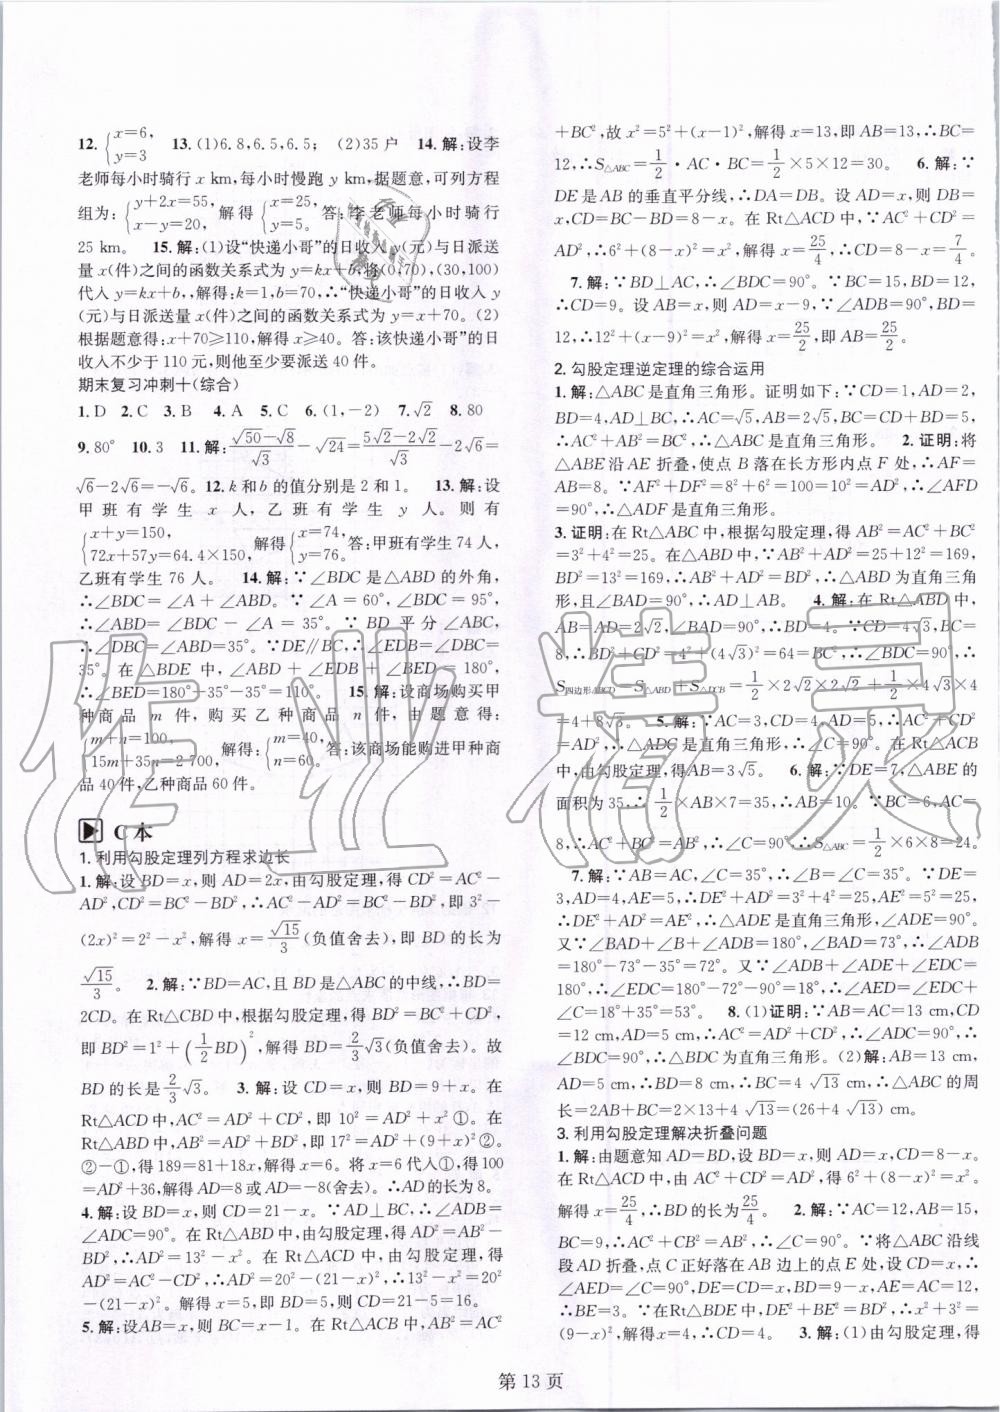 12. {x=6, y=3  13. (1)6.8,6.5,6.5; (2)35户  14. 解:设李
老师每小时骑行 x km,每小时慢跑 y km,据题意,可列方程
组为:{y+2x=55, x-y=20, 解得{x=25, y=5. 答:李老师每小时骑行
25 km。 15. 解:(1)设“快递小哥”的日收入 y(元)与日派送
量 x(件)之间的函数关系式为 y=kx+b,将(0,70),(30,100)
代入 y=kx+b,,解得:k=1,b=70,∴“快递小哥”的日收入 y
(元)与日派送量 x(件)之间的函数关系式为 y=x+70。(2)
根据题意得:x+70≥110,解得 x≥40。答:该“快递小哥”的日
收入不少于 110 元,则他至少要派送 40 件。
期末复习冲刺十(综合)
1. D 2. C 3. B 4. A 5. C 6. (1,-2) 7. √2 8. 80
9. 80° 10. 3 11. 解:(√50-√8)/√3-√24=(5√2-2√2)/√3-2√6=
√6-2√6=-√6。 12. k和b的值分别是2和1。 13. 解:设
甲班有学生 x 人,乙班有学生 y 人。则有
{x+y=150, 72x+57y=64.4×150, 解得{x=74, y=76。答:甲班有学生 74 人,
乙班有学生 76 人。 14. 解:∵∠BDC是△ABD的外角,
∴∠BDC=∠A+∠ABD。∵∠A=60°,∠BDC=95°,
∴∠ABD=∠BDC-∠A=35°。∵BD平分∠ABC,
∴∠DBC=∠ABD=35°。∵DE∥BC,∴∠EDB=∠DBC=
35°。在△BDE中,∠ABD+∠EDB+∠BED=180°,
∴∠BED=180°-35°-35°=110°。 15. 解:设商场购买甲
种商品 m 件,购买乙种商品 n 件,由题意得:
{m+n=100, 15m+35n=2 700, 解得:{m=40, n=60。答:该商场能购进甲种商
品 40 件,乙种商品 60 件。
C本
1. 利用勾股定理列方程求边长
1. 解:设BD=x,则AD=2x,由勾股定理,得CD²=AC²-
AD²,CD²=BC²-BD²,∴AC²-AD²=BC²-BD²,即3²-
(2x)²=2²-x²,解得x=√15/3(负值舍去),即BD的长为
√15/3。 2. 解:∵BD=AC,且BD是△ABC的中线,∴BD=
2CD。在Rt△CBD中,根据勾股定理,得BD²=BC²+CD²,
即BD²=1²+(1/2BD)²,解得BD=2/3√3(负值舍去)。故
BD的长是2/3√3。 3. 解:设CD=x,则BD=9+x。在
Rt△ACD中,AC²=AD²+CD²,即10²=AD²+x²①。在
Rt△ABD中,AB²=AD²+BD²,即17²=AD²+(9+x)²②。
②-①,得189=81+18x,解得x=6。将x=6代入①,得100
=AD²+36,解得AD=8或AD=-8(舍去)。∴AD的长为8。
4. 解:设BD=x,则CD=21-x。∵AD⊥BC,∴∠ADB=
∠ADC=90°。在Rt△ABD中,由勾股定理,得AD²=AB²-
BD²,∴AD²=13²-x²。在Rt△ACD中,由勾股定理,得
AD²=AC²-CD²,∴AD²=20²-(21-x)²,∴13²-x²=20²
-(21-x)²。解得x=5,即BD=5,则CD=21-5=16。
5. 解:设AB=x,则BC=x-1。在Rt△ABC中,AB²=AC²
+BC²,故x²=5²+(x-1)²,解得x=13,即AB=13,∴BC=
12,∴S△ABC=1/2·AC·BC=1/2×5×12=30。 6. 解:∵
DE是AB的垂直平分线,∴DA=DB。设AD=x,则DB=
x,CD=BC-BD=8-x。在Rt△ACD中,∵AC²+CD²=
AD²,∴6²+(8-x)²=x²,解得x=25/4,∴CD=8-x=7/4。
7. 解:∵BD⊥AC,∴∠BDC=90°。∵BC=15,BD=12,
∴CD=9。设AB=x,则AD=x-9,∵∠ADB=90°,BD=
12,∴12²+(x-9)²=x²,解得x=25/2,即AB=25/2。
2. 勾股定理逆定理的综合运用
1. 解:△ABC是直角三角形。证明如下:∵CD=1,AD=2,
BD=4,AD⊥BC,∴AC=√5,AB=2√5,BC=CD+BD=5,
∴AC²+AB²=BC²,∴△ABC是直角三角形。 2. 证明:将
△ABE沿AE折叠,使点B落在长方形内点F处,∴∠AFE
=90°,AB=AF=6。∵AF²+DF²=6²+8²=10²=AD²,∴∠AFD
=90°,∴△ADF是直角三角形。
3. 证明:在Rt△ABC中,根据勾股定理,得AB²=AC²+BC²
=3²+4²=25。在△ABD中,∵AB²+AD²=25+12²=169,
BD²=13²=169,∴AB²+AD²=BD²,∴△ABD为直角三角形,
且∠BAD=90°,∴AD⊥AB。 4. 解:在Rt△ABD中,
AB=AD=2√2,∠BAD=90°,∴BD=4。∵CD=4√3,
BC=8,∴BD²+CD²=4²+(4√3)²=64=BC²,∴∠BDC=90°,∴
S四边形ABCD=S△ABD+S△DCB=1/2×2√2×2√2+1/2×4√3×4
=4+8√3。 5. 解:∵AC=3,CD=4,AD=5,∴AC²+CD²
=AD²,∴△ADC是直角三角形,∴∠C=90°。在Rt△ACB
中,由勾股定理,得AB=3√5。 6. 解:∵DE=7,△ABE的
面积为35,∴1/2×AB×7=35,∴AB=10。∵BC=6,AC=
8,∴AC²+BC²=AB²,∴∠C=90°,∴S△ABC=1/2×6×8=24。
7. 解:∵AB=AC,∠C=35°,∴∠B=∠C=35°。∵DE=
3,AD=4,AE=5,∴AD²+DE²=4²+3²=25,AE²=5²=25,
∴AD²+DE²=AE²,∴△ADE是直角三角形,∠ADE=90°。
又∵∠BAD+∠B+∠ADB=180°,∠BAD=73°,∴∠ADB
=180°-73°-35°=72°。又∵∠ADB+∠ADE+∠EDC=
180°,∴∠EDC=180°-72°-90°=18°,∴∠AED=∠EDC+
∠C=18°+35°=53°。 8. (1)证明:∵AB=AC=13 cm,CD
=12 cm,AD=5 cm,∴AC²=AD²+CD²,∴∠ADC=90°,
∴∠BDC=90°,∴△BDC为直角三角形。(2)解:AB=13 cm,
AD=5 cm,∴BD=8 cm,∴BC=4√13 cm,∴△ABC的周
长=2AB+BC=2×13+4√13=(26+4√13)cm。
3. 利用勾股定理解决折叠问题
1. 解:由题意知AD=BD,设BD=x,则AD=x,CD=8-x。
在Rt△ACD中,由AC²+CD²=AD²,得6²+(8-x)²=x²。
解得x=25/4,∴BD的长为25/4。 2. 解:∵AC=12,AB=15,
BC=9,∴AC²+BC²=AB²,∴∠C=90°。∵将△ABC沿线
段AD折叠,点C正好落在AB边上的点E处,设CD=x,∴
∠AED=∠C=90°,DE=CD=x,BD=9-x,AE=AC=12,
∴BE=3。∵在Rt△BDE中,DE²+BE²=BD²,∴x²+3²=
(9-x)²,解得x=4,∴CD=4。 3. 解:(1)由勾股定理,得
第13页
作业精灵